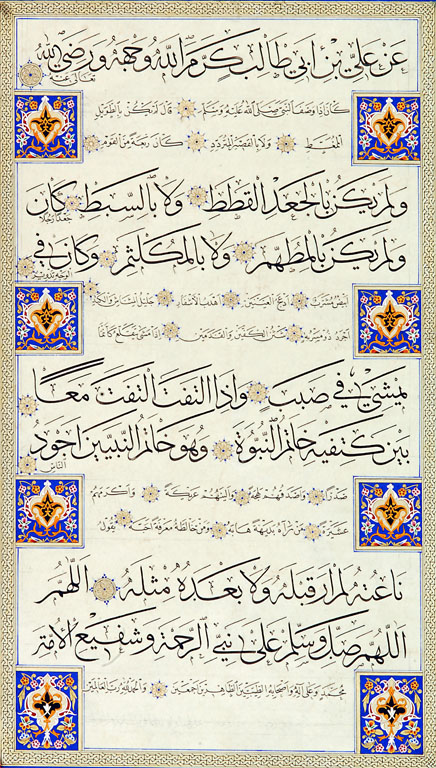 عن علي بن ابي طالب كرم الله وجهه ورضي الله
تعالى عنه
كان اذا وصف النبي صلى الله عليه وسلم قال لم يكن بالطويل
الممغط ولا بالقصير المتردد كان ربعة من القوم
ولم يكن بالجعد القطط ولا بالسبط كان
جعدا رجلا
ولم يكن بالمطهم ولا بالمكلثم وكان في
الوجه تدوير
ابيض مشرب ادعج العينين اهدب الاشفار جليل المشاش والكتد
اجرد ذو مسربة شثن الكفين والقدمين اذا مشى تقلع كانما
يمشي في صبب واذا التفت التفت معا
بين كتفيه خاتم النبوة وهو خاتم النبيين اجود
الناس
صدرا واصدقهم لهجة والينهم عريكة واكرمهم
عشيرة من رآه بديهة هابه ومن خالطه معرفة احبه يقول
ناعته لم ار قبله ولا بعده مثله اللهم
اللهم صل وسلم على نبي الرحمة وشفيع الامة
محمد وعلى آله واصحابه الطيبين الطاهرين اجمعين والحمد لله رب العالمين